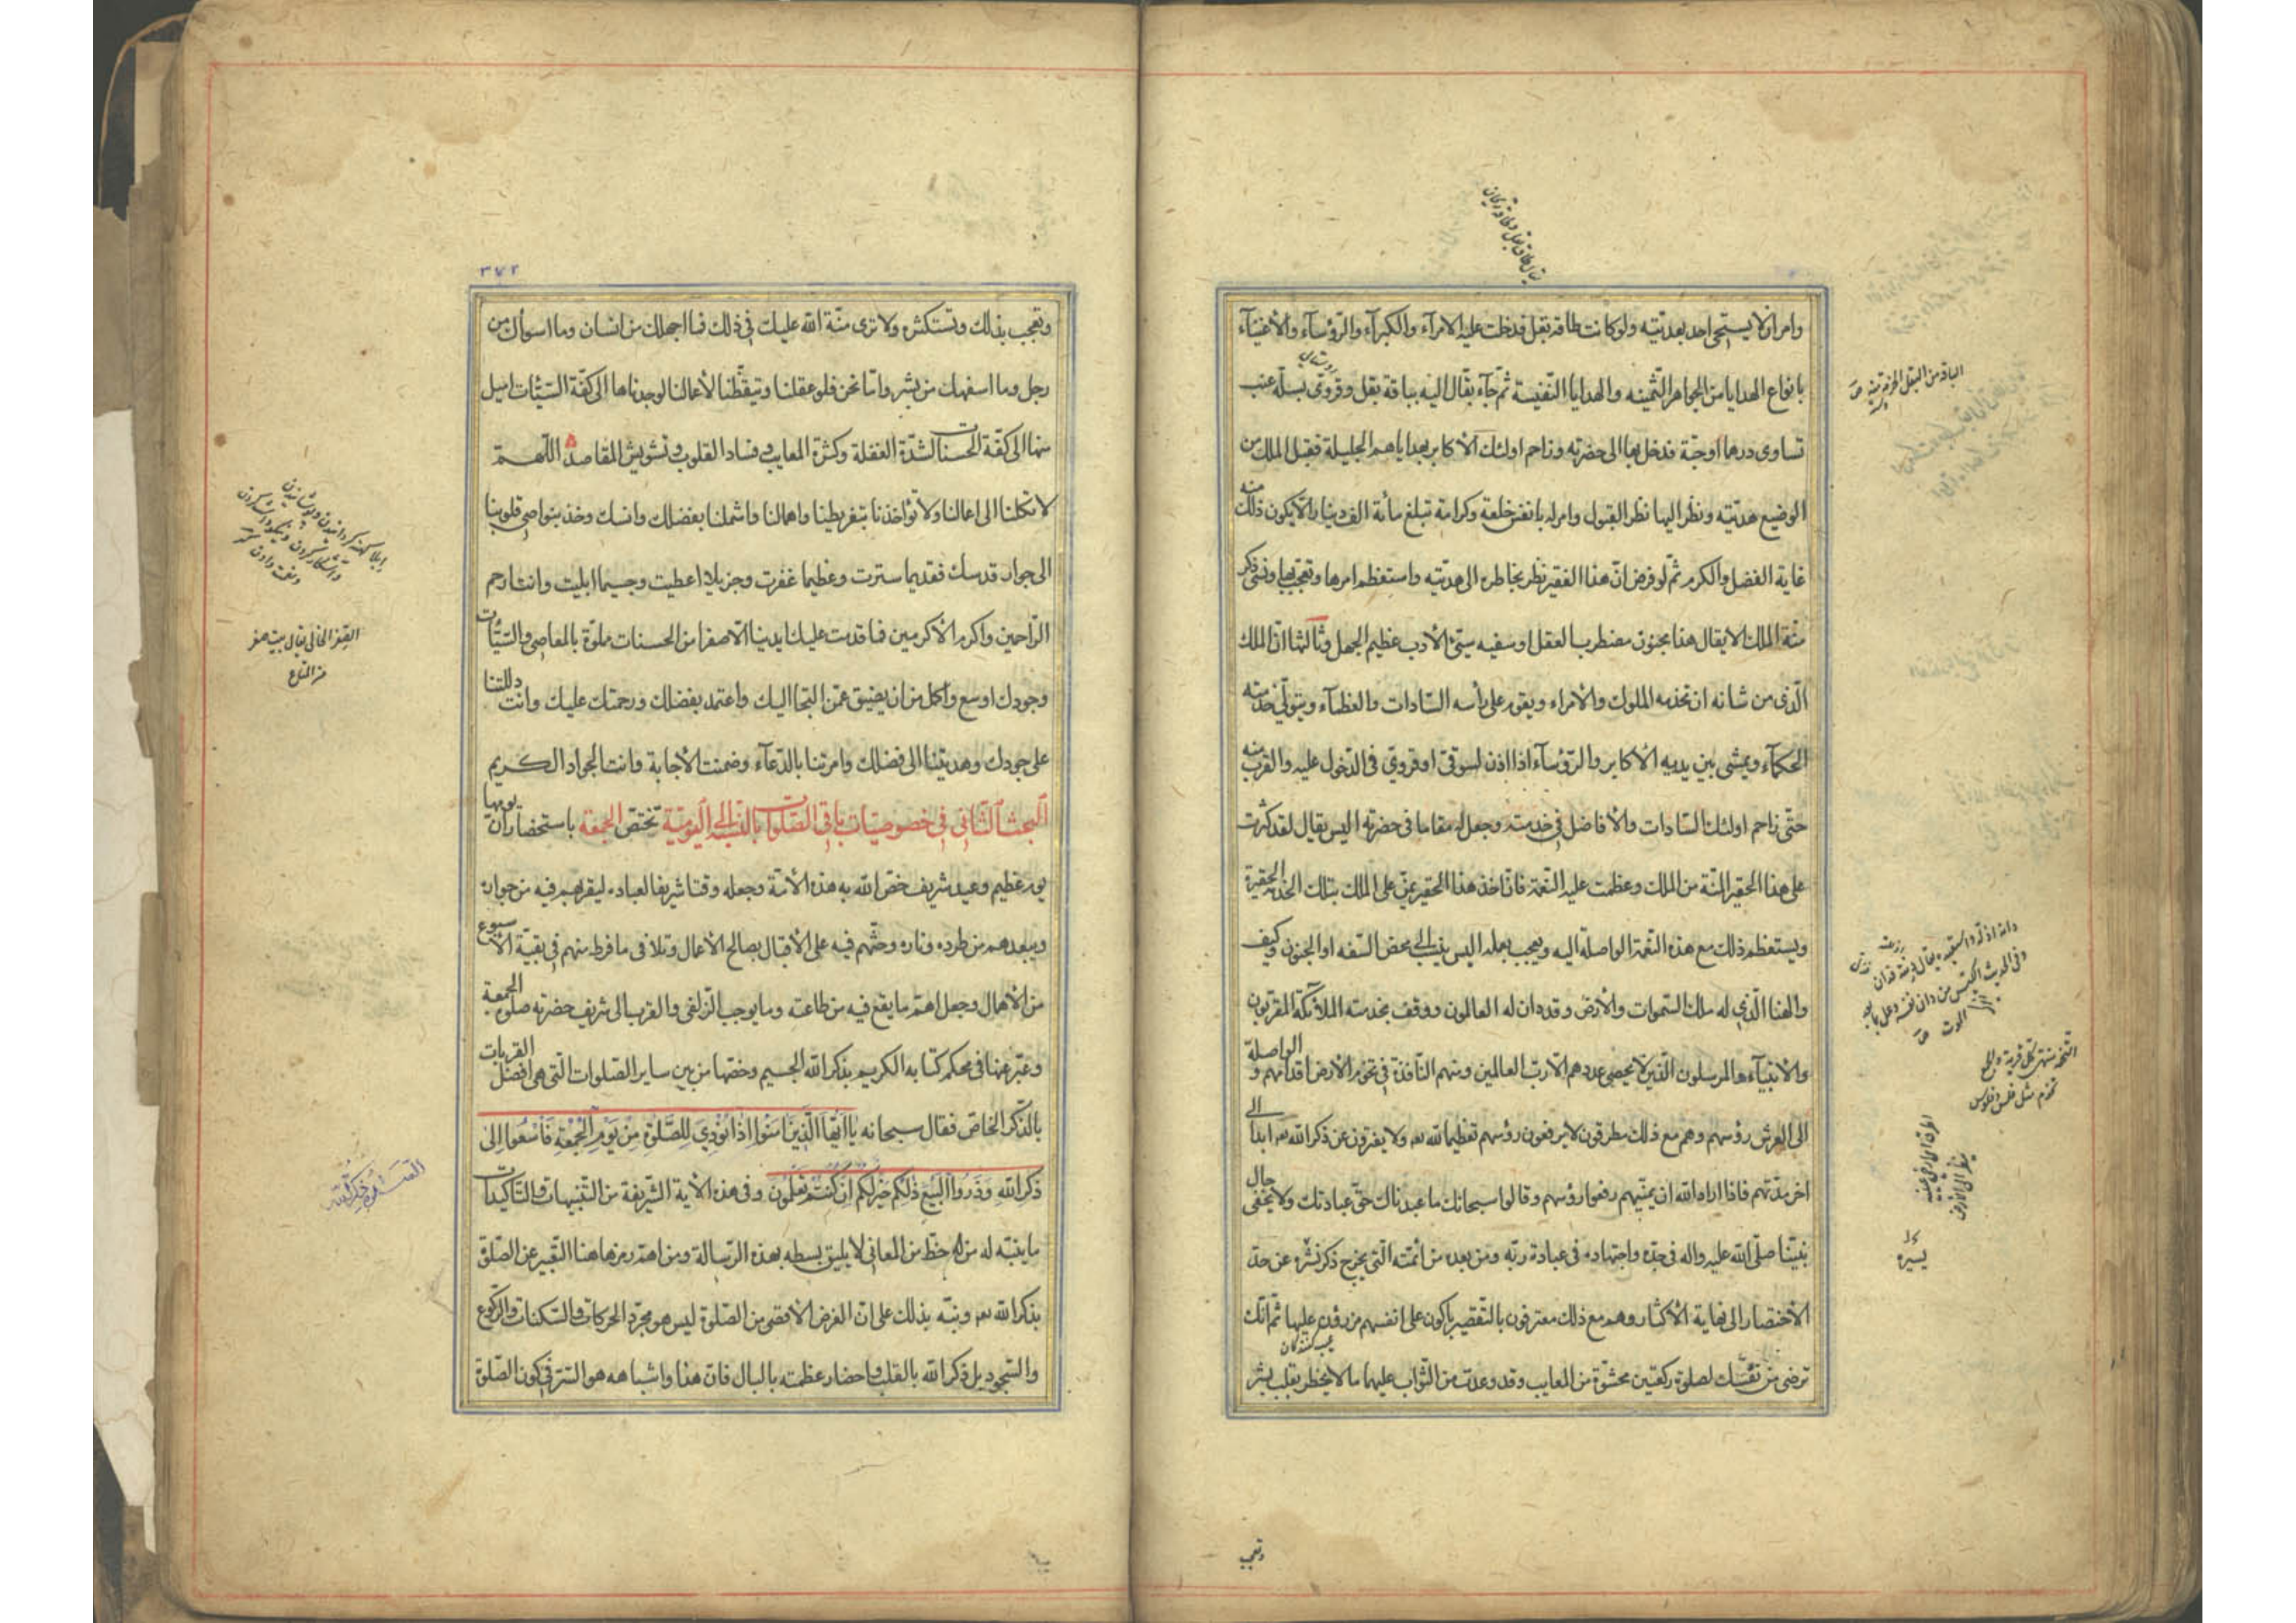 وامر ان لا يستحيى احد بهديّته ولو كانت طاقه بقل فدخلت عليه الامرآء والكبرآء والرّؤسآء والاغنيآء
بانواع الهدايا من الجواهر الثّمينه والهدايا النّفيسة ثم جآء بقّال اليه بباقة بقل وقروى بسلّة عنب
روستائى
تساوى درهما او حبّة فدخل بها الى حضرته وزاحم اولئك الاكابر بهداياهم الجليلة فقبل الملك من
الوضيع هديّته ونظر اليها نظر القبول وامر له بانفس خلعة وكرامة تبلغ مائة الف دينار الا يكون ذلك منه
غاية الفضل والكرم ثمّ لو فرض انّ هذا الفقير نظر بخاطره الى هديّته واستعظم امرها وتعجّب بها ونسى ذكر
منّة الملك الا يقال هذا مجنون مضطرب العقل او سفيه سيّئ الادب عظيم الجهل وثالثها انّ الملك
الّذى من شانه ان تخدمه الملوك والامراء ويقوم على رأسه السّادات والعظمآء ويتولّى خدمته
الحكمآء ويمشى بين يديه الاكابر والرّؤسآء اذا اذن لسوقىّ او قروىّ فى الدّخول عليه والقرب منه
حتّى زاحم اولئك السّادات والافاضل فى خدمته وجعل له مقاما فى حضرته اليس يقال لقد كثرت
على هذا الحقير المنّة من الملك وعظمت عليه النّعمة فان اخذ هذا الحقير يمنّ على الملك بتلك الخدمة الحقيرة
ويستعظم ذلك مع هذه النّعمة الواصلة اليه ويعجب بعمله اليس ينسب الى محض السّفه او الجنون وكيف
والهنا الّذى له ملك السّموات والارض وقد دان له العالمون ووقف بخدمته الملآئكة المقرّبون
والانبيآء والمرسلون الّذين لا يحصى عددهم الّا ربّ العالمين ومنهم النّافذة فى تخوم الارض اقدامهم والواصلة
الى العرش رؤسهم وهم مع ذلك مطرقون لا يرفعون رؤسهم تعظيما لله تعالى ولا يفترون عن ذكر الله تعالى ابدا الى
اخر مدّتهم فاذا اراد الله ان يميتهم رفعوا رؤسهم وقالوا سبحانك ما عبدناك حقّ عبادتك ولا يخفى حال
نبيّنا صلّى الله عليه واله فى جدّه واجتهاده فى عبادة ربّه ومن بعده من ائمّته الّتى يخرج ذكر نشره عن حدّ
الاختصار الى نهاية الاكثار وهم مع ذلك معترفون بالتّقصير باكون على انفسهم مزرون عليها ثمّ انّك
عيب كنندگان
ترضى من نفسك لصلوة ركعتين محشوّة من المعايب وقد وعدت من الثّواب عليها ما لا يخطر بقلب بشر
وتعجب
٣٧٢
وتعجب بذلك وتستكثره ولا ترى منّة الله عليك فى ذلك فما اجهلك من انسان وما اسوأك من
رجل وما اسفهك من بشر وانّا نحن فلو عقلنا وتيقّظنا لاعمالنا لوجدناها الى كفّة السّيّئات اميل
منها الى كفّة الحسنات لشدّة الغفلة وكثرة المعايب وفساد القلوب وتشويش المقاصد اللّهمّ
لا تكلنا الى اعمالنا ولا تؤاخذنا بتفريطنا واهمالنا واشملنا بفضلك وانسك وخذ بنواصى قلوبنا
الى جوار قدسك فقديما سترت وعظيما غفرت وجزيلا اعطيت وجسيما ابليت وانت ارحم
الرّاحمين واكرم الاكرمين فما قدمت عليك ايدينا الّا صفرا من الحسنات مملوّة بالمعاصى والسّيّئات
وجودك اوسع واكمل من ان يضيق عمّن التجا اليك واعتمد بفضلك ورحمتك عليك وانت دللتنا
على جودك وهديتنا الى فضلك وامرتنا بالدّعآء وضمنت الاجابة وانت الجواد الكريم
البحث الثانى فى خصوصيّات باقى الصّلوات بالنّسبة الى اليوميّة تختصّ الجمعة باستحضار انّ يومها
يوم عظيم وعيد شريف خصّ الله به هذه الامّة وجعله وقتا شريفا لعباده ليقرّبهم فيه من جواره
ويبعدهم من طرده وناره وحثّهم فيه على الاقبال بصالح الاعمال وتلافى ما فرط منهم فى بقيّة الاسبوع
من الاهمال وجعل اهمّ ما يقع فيه من طاعته وما يوجب الزّلفى والقرب الى شريف حضرته صلوة الجمعة
وعبّر عنها فى محكم كتابه الكريم بذكر الله الجسيم وخصّها من بين ساير الصّلوات الّتى هى افضل القربات
بالذّكر الخاصّ فقال سبحانه يا ايّها الّذين امنوا اذا نودى للصّلوة من يوم الجمعة فاسعوا الى
ذكر الله وذروا البيع ذلكم خير لكم ان كنتم تعلمون وفى هذه الاية الشّريفة من التّنبيهات والتّاكيدات
ما يتنبّه له من له حظّ من المعانى لا يليق بسطه بهذه الرّسالة ومن اهمّ رمزها هنا التّعبير عن الصّلوة
بذكر الله تعالى ونبّه بذلك على انّ الغرض الاقصى من الصّلوة ليس هو مجرّد الحركات والسّكنات والرّكوع
والسّجود بل ذكر الله بالقلب واحضار عظمته بالبال فانّ هذا واشباهه هو السّرّ فى كون الصّلوة